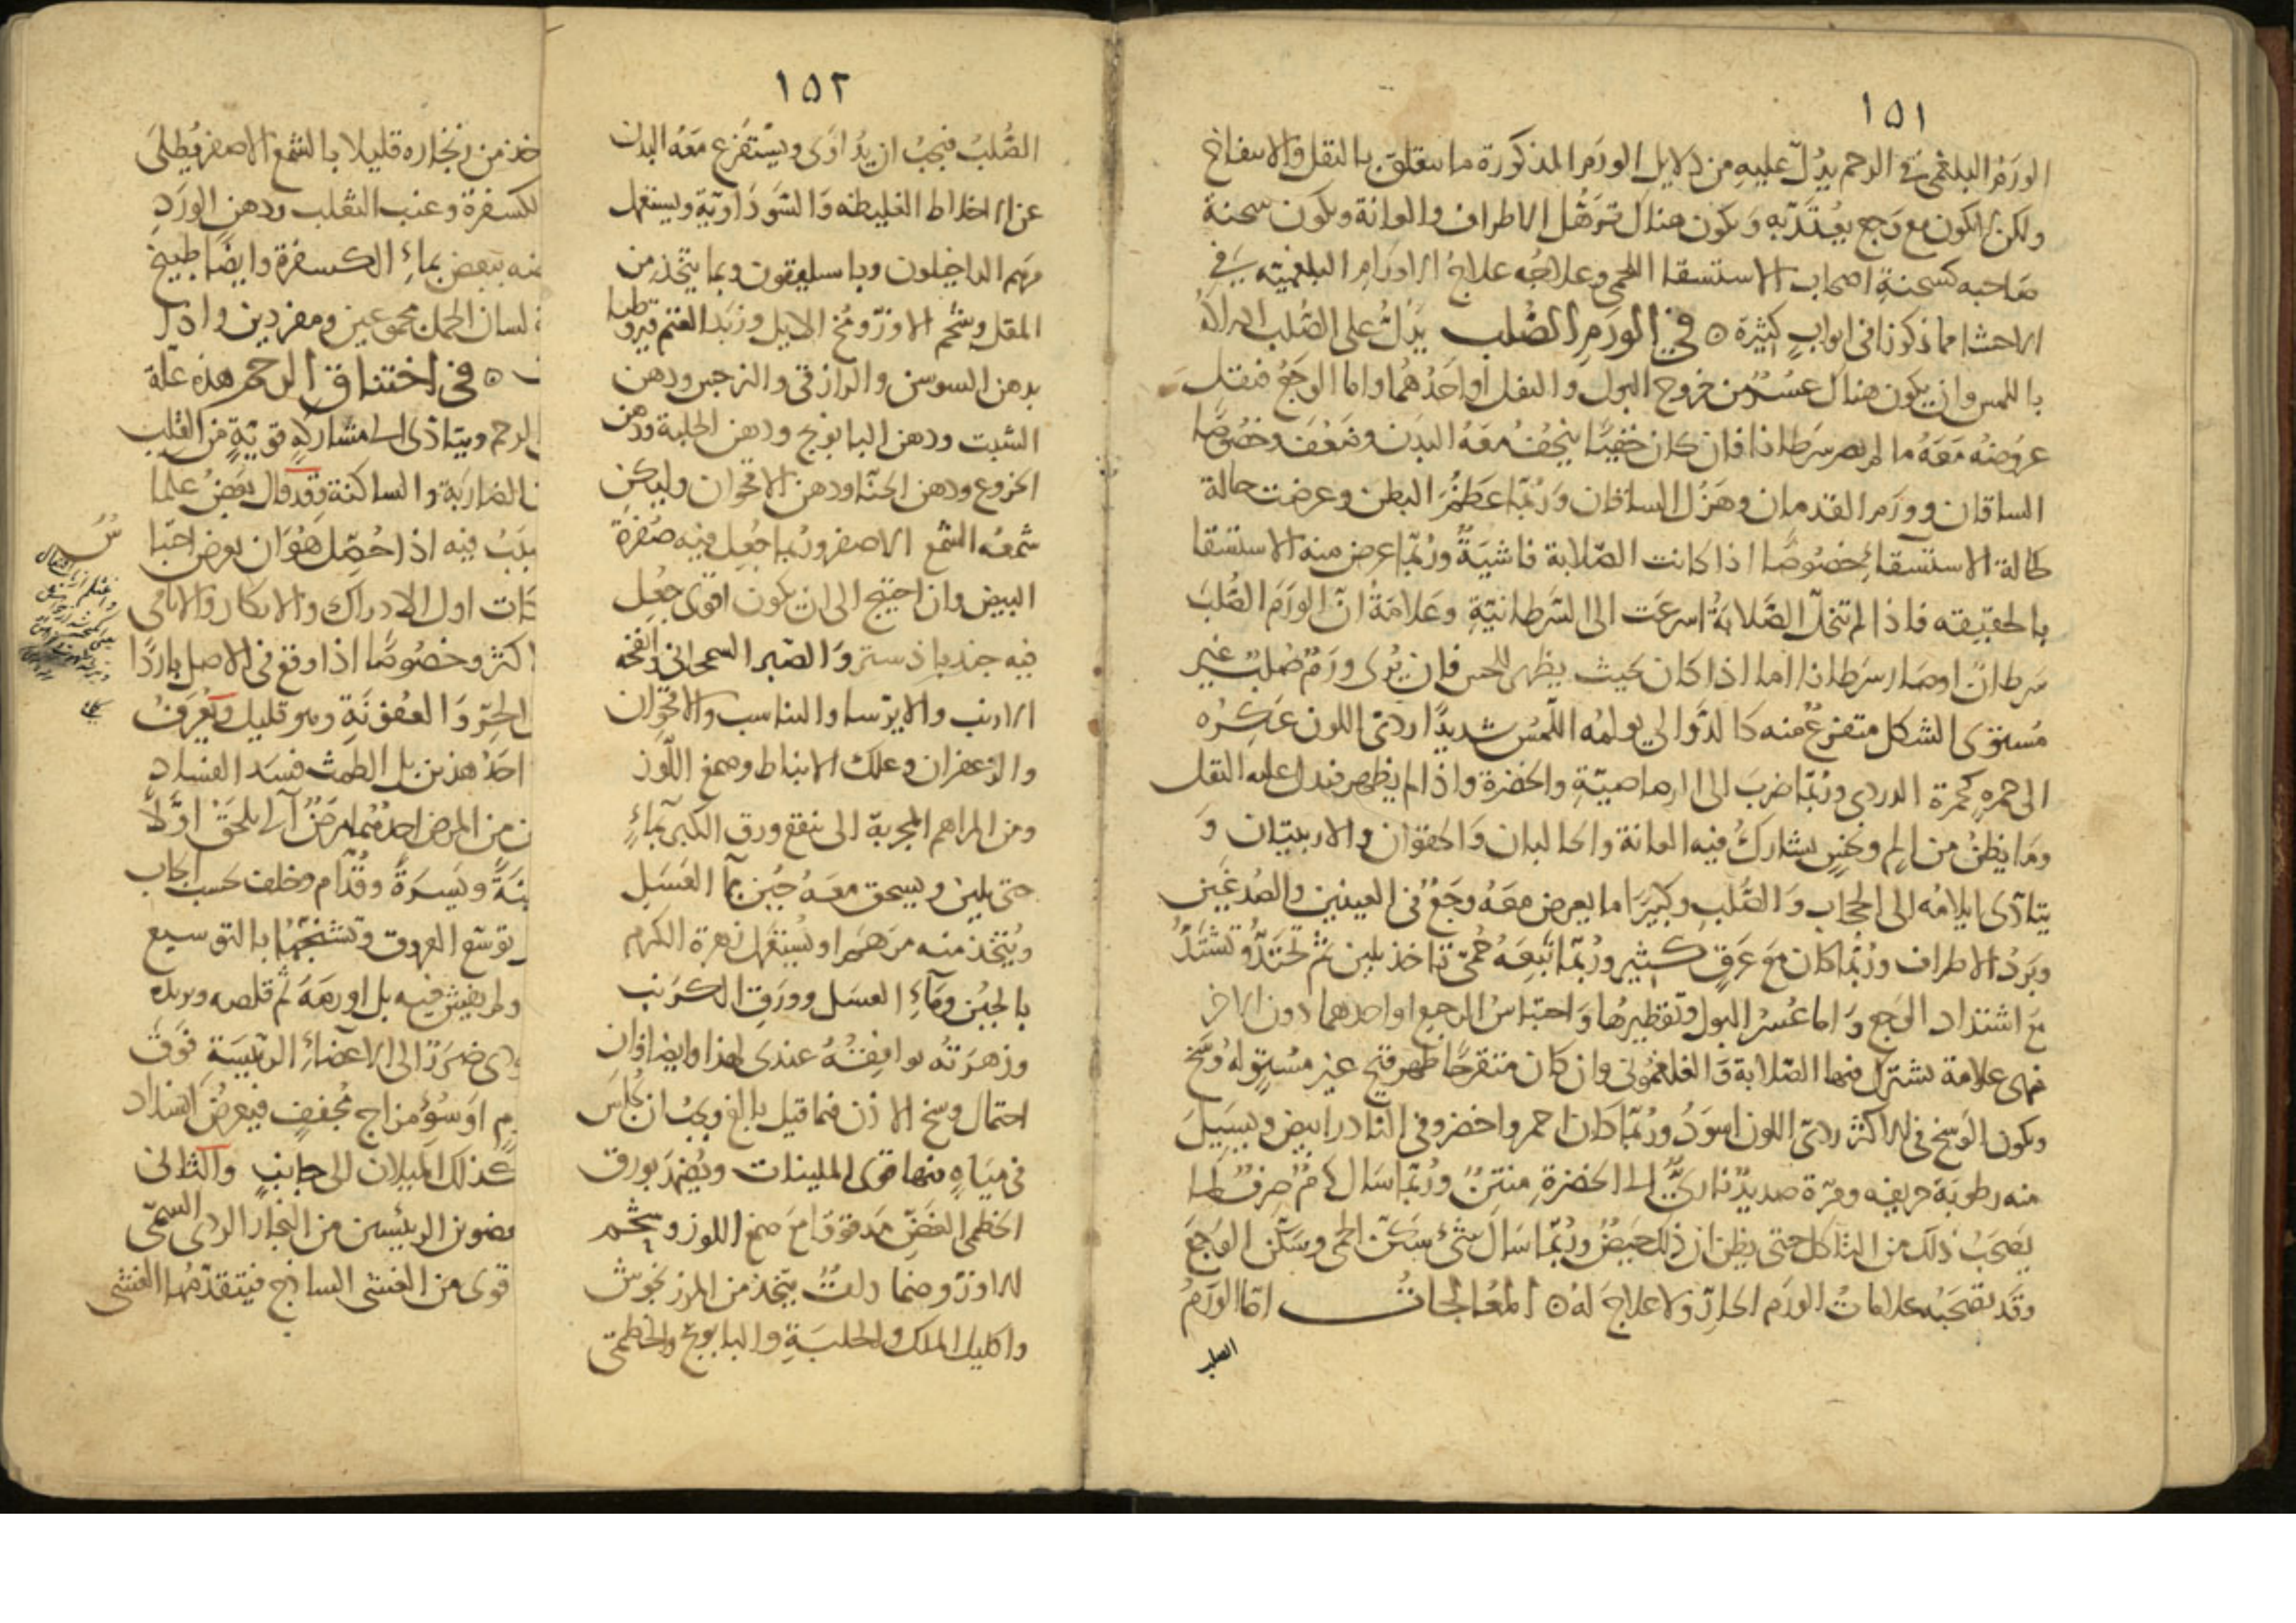 ١٥١
الورم البلغمى فى الرحم يدل عليه من دلايل الورم المذكورة ما يتعلق بالثقل والانتفاخ
ولكن لا يكون مع وجع يعتد به ويكون هناك ترهل الاطراف والعانة ويكون سحنة
صاحبه كسحنة اصحاب الاستسقا اللحمى وعلاجه علاج الاورام البلغمية فى
الاحشا مما ذكرنا فى ابواب كثيرة ۞ فى الورم الصلب يدل على الصلب
باللمس وان يكون هناك عسر من خروج البول والثفل او احدهما واما الوجع فيقل
عروضه معه ما لم يصر سرطانا فان كان خفيا ينحف معه البدن وضعف وخصوصا
الساقان وورم القدمان وهزل الساقان وربما عظم البطن وعرضت حالة
كالة الاستسقاء خصوصا اذا كانت الصلابة فاشية وربما عرض منه الاستسقا
بالحقيقه فاذا لم تنحل الصلابة اسرعت الى السرطانية وعلامة ان الورم الصلب
سرطان او صار سرطانا اما اذا كان بحيث يظهر للحس فان يرى ورم صلب غير
مستوى الشكل متفرع منه كالدوالى يولمه اللمس شديدا ردى اللون عكره
الى حمرة كحمرة الدردى وربما ضرب الى الرصاصية والخضرة واذا لم يظهر فيدل عليه الثقل
وما يظن من الم ونخس يشارك فيه العانة والحالبان والحقوان والاربيتان و
يتادى ايلامه الى الحجاب والصلب وكثيرا ما يعرض معه وجع فى العينين والصدغين
وبرد الاطراف وربما كان مع عرق كثير وربما تبعه حمى تاخذ بلين ثم تحتد وتشتد
مع اشتداد الوجع واما عسر البول وتقطيرها واحتباس الرجيع او احدهما دون الاخر
فهى علامة تشترك فيها الصلابة والفلغمونى وان كان متقرحا ظهر قيح غير مستو له وسخ
ويكون الوسخ فى الاكثر ردى اللون اسود وربما كان احمر واخضر وفى النادر ابيض ويسيل
منه رطوبة حريفه ومرة صديد نارى الى الخضرة منتن وربما سال دم صرف لما
يصحب ذلك من التاكل حتى يظن ان ذلك حيض وربما سال شئ سكن الحمى وسكن الوجع
وقد تصحبه علامات الورم الحار ولا علاج له ۞ المعالجات اما الورم
الصلب
١٥٢
الصلب فيجب ان يداوى ويستفرغ معه البدن
عن الاخلاط الغليظه والسوداوية ويستعمل
مرهم الداخيلون وباسليقون وبما يتخذ من
المقل وشحم الاوز ومخ الايل وزبد الغنم قيروطيا
بدهن السوسن والرازقى والنرجس ودهن
الشبت ودهن البابونج ودهن الحلبة ودهن
الخروع ودهن الحنا ودهن الاقحوان وليكن
شمعه الشمع الاصفر وربما جعل فيه صفرة
البيض وان احتيج الى ان يكون اقوى جعل
فيه جندباذستر والصبر وانفحه
الارنب والايرسا والاقحوان
والزعفران وعلك الانباط وصمغ اللوز
ومن المراهم المجربة الى ينقع ورق الكبر بماء
حتى يلين ويسحق معه جبن بما العسل
ويتخذ منه مرهم او يستعمل زهرة الكرم
بالجبن وماء العسل وورق الكرنب
وزهرته موافقة عندى لهذا وايضا فان
احتمال وسخ الاذن فيما قيل بالغ ويجب ان يجلس
فى مياه فيها قوى الملينات ويضمد بورق
الخطمى الغض مدقوقا مع صمغ اللوز وشحم
الاوز وضما دات يتخذ من المرزنجوش
واكليل الملك والحلبة والبابونج والخطمى
خذ من نخاره قليلا بالشمع الاصفر يطلى
لكسفرة وعنب الثعلب ودهن الورد
منه ببعض بماء الكسفرة وايضا طبيخ
لسان الحمل مجموعين ومفردين واذا
۞ فى اختناق الرحم هذه علة
الرحم ويتاذى الى مشاركة قوية من القلب
الضاربة والساكنة وقد قال بعض علما
سبب فيه اذا حصل هو ان يعرض احتبا
ات اول الادراك والابكار والايامى
اكثر وخصوصا اذا وقع فى الاصل باردا
الحر والعفونة وهو قليل ويعرف
احد هذين بل الطمث فسد الفساد
ن من المرض احدهما مرض آلى يلحق اولا
نة ويسرة وقدام وخلف بحسب ايجاب
توسع العروق وتشنجها بالتوسيع
ولم يفش فيه بل اورمه ثم قلصه
دى ضرره الى الاعضاء الرئيسة فوق
م او سوء مزاج مجفف فيعرض انسداد
كذلك الميلان الى جانب والثانى
عضوين الرئيسين من البخار الردى السمى
قوى من الغشى الساذج فيتقدمها الغشى